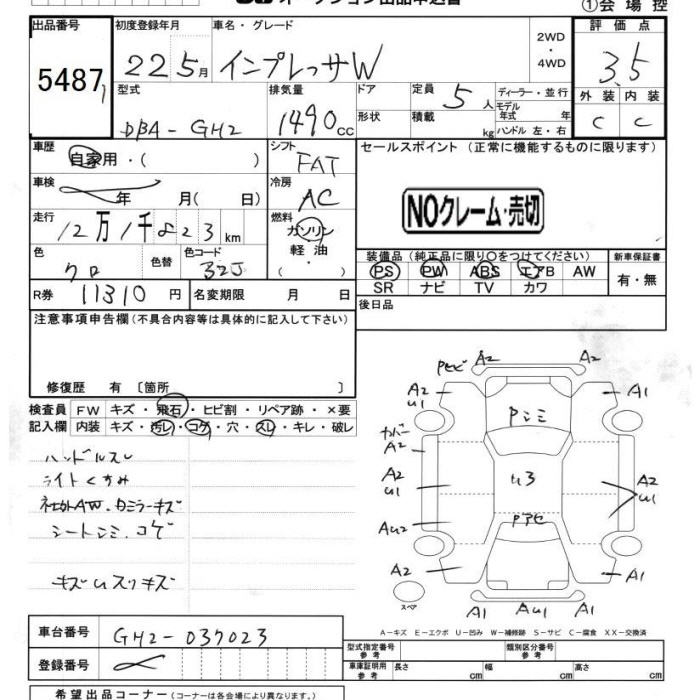 オークション出品申込書
①会場控
出品番号
5487
初度登録年月
22 5月
車名・グレード
インプレッサW
2WD
・
4WD
評価点
3.5
外装 内装
C C
型式
DBA-GH2
排気量
1490cc
ドア
形状
定員 5人
積載 kg
ディーラー・並行
モデル
年式 年
ハンドル 左・右
車歴
自家用・( )
シフト
FAT
車検
年 月( 日)
冷房
AC
走行
12万1千823km
燃料
ガソリン
軽・油
( )
色
クロ
色替
色コード
32J
R券 11310円
名変期限 月 日
セールスポイント (正常に機能するものに限ります)
NOクレーム・売切
装備品(純正品に限り○をつけてください)
PS PW ABS エアB AW
SR ナビ TV カワ
新車保証書
有・無
後日品
注意事項申告欄(不具合内容等は具体的に記入して下さい)
修復歴 有 〔箇所 〕
検査員
記入欄
FW キズ・飛石・ヒビ割・リペア跡・×要
内装 キズ・汚レ・コゲ・穴・スレ・キレ・破レ
ハンドルスレ
ライトくすみ
社外AW.カミラーキズ
シートシミ.コゲ
キズuスリキズ
A2 A2
A2
u1
A1
Pシミ
カバー
A2
A2
u1
u3
A2
u1
Au2
Pアセ
A2
A1
スペア
A1 Au1 A1
A-キズ E-エクボ U-凹み W-補修跡 S-サビ C-腐食 XX-交換済
車台番号
GH2-037023
登録番号
型式指定番号
参考
類別区分番号
参考
車庫証明用
参考
長さ cm
幅 cm
高さ cm
希望出品コーナー(コーナーは各会場により異なります。)